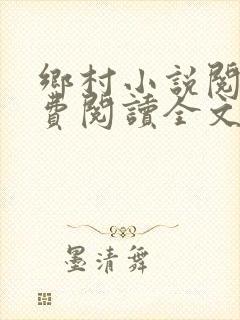 鄉村小說閱
費閱讀全文
墨清舞